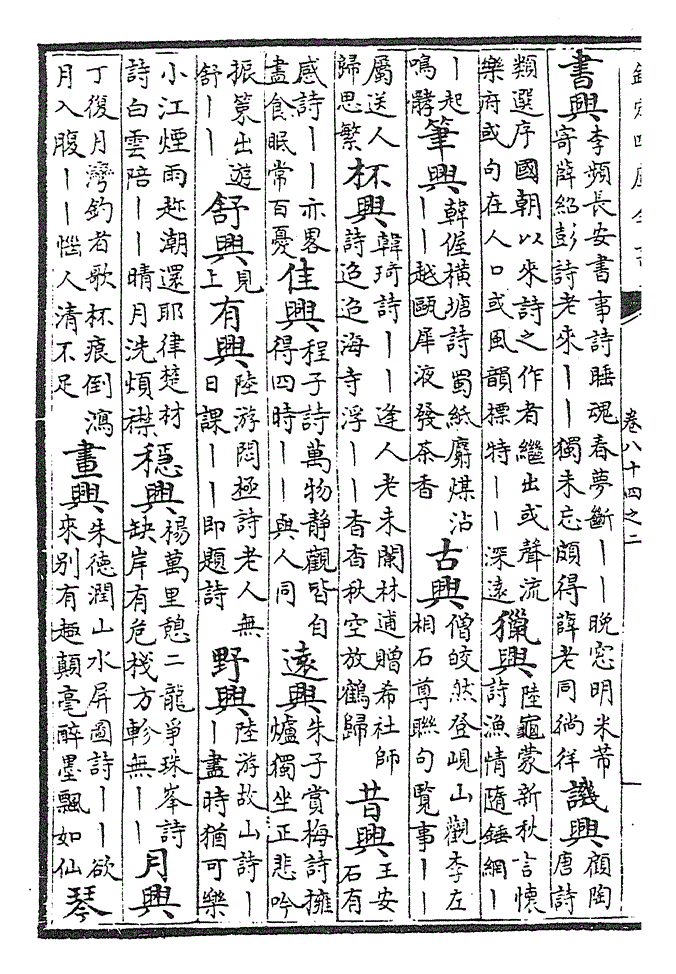 欽定四庫全書
卷八十四之二
書興李頻長安書事詩睡魂春夢斷丨丨晚窓明米芾寄薛紹彭詩老來丨丨獨未忘頗得薛老同徜徉譏興顧陶唐詩
類選序國朝以來詩之作者繼出或聲流樂府或句在人口或風韻標特丨丨深遠獵興陸龜蒙新秋言懷詩漁情隨錘網丨
丨起鳴髇筆興韓偓橫塘詩蜀紙麝煤沾丨丨越甌犀液發茶香古興僧皎然登峴山觀李左相石尊聯句覽事丨丨
屬送人歸思繁杯興韓琦詩丨丨逢人老未闌林逋贈希社師詩迢迢海寺浮丨丨杳杳秋空放鶴歸昔興王安石有
感詩丨丨亦畧盡食眠常百憂佳興程子詩萬物靜觀皆自得四時丨丨與人同遠興朱子賞梅詩擁爐獨坐正悲吟
振策出遊舒丨丨舒興見上有興陸游悶極詩老人無日課丨丨即題詩野興陸游故山詩丨丨盡時猶可樂
小江煙雨趂潮還耶律楚材詩白雲陪丨丨晴月洗煩襟穩興楊萬里憩二龍爭珠峯詩缺岸有危棧方軫無丨丨月興
丁復月灣釣者歌杯痕倒瀉月入腹丨丨惱人清不足畫興朱德潤山水屏圖詩丨丨欲來別有趣顛毫醉墨飄如仙琴